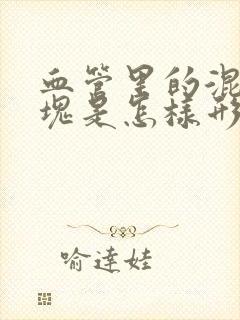 血管里的混
块是怎样形
喻達娃